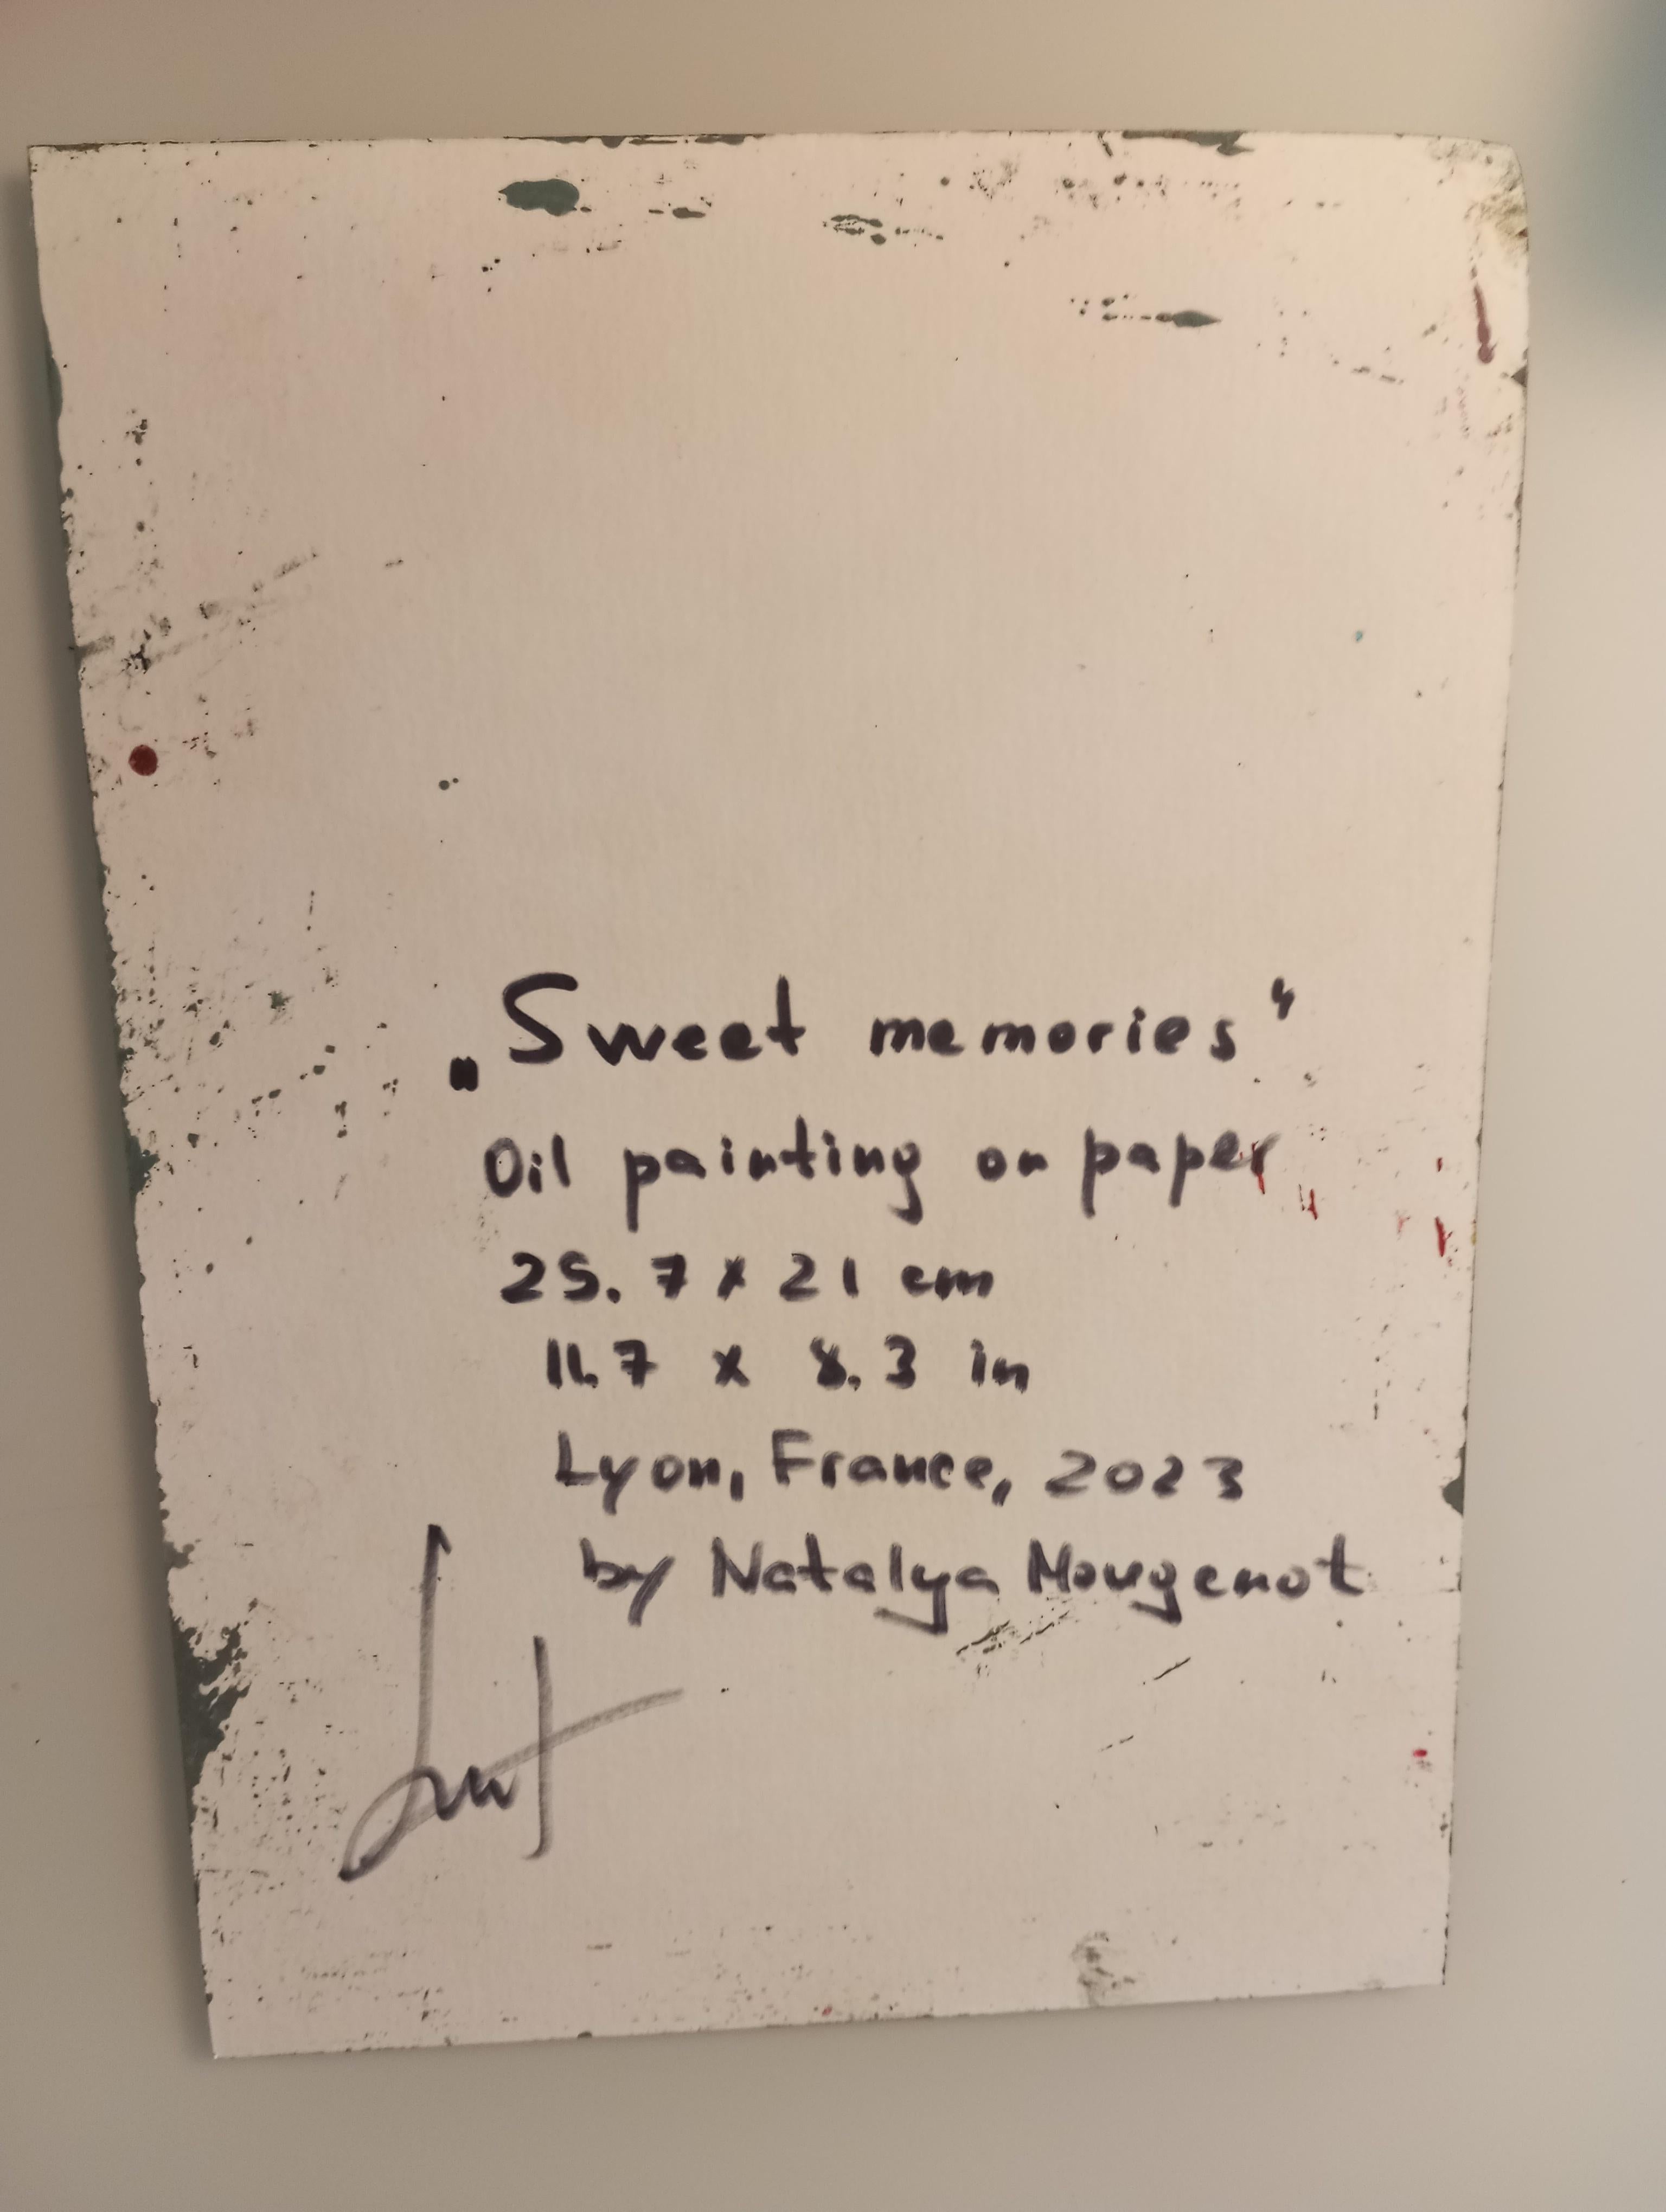 „Sweet memories“
Oil painting on paper
25.7 x 21 cm
11.7 x 8.3 in
Lyon, France, 2023
by Natalya Mougenot